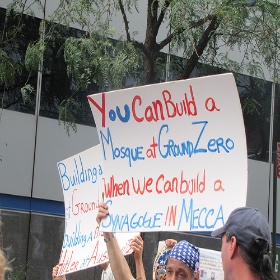 YOU CAN BUILD A
MOSQUE at GROUND ZERO
WHEN WE CAN BUILD A
SYNAGOGUE IN MECCA
Building a
at GROUND
Building A